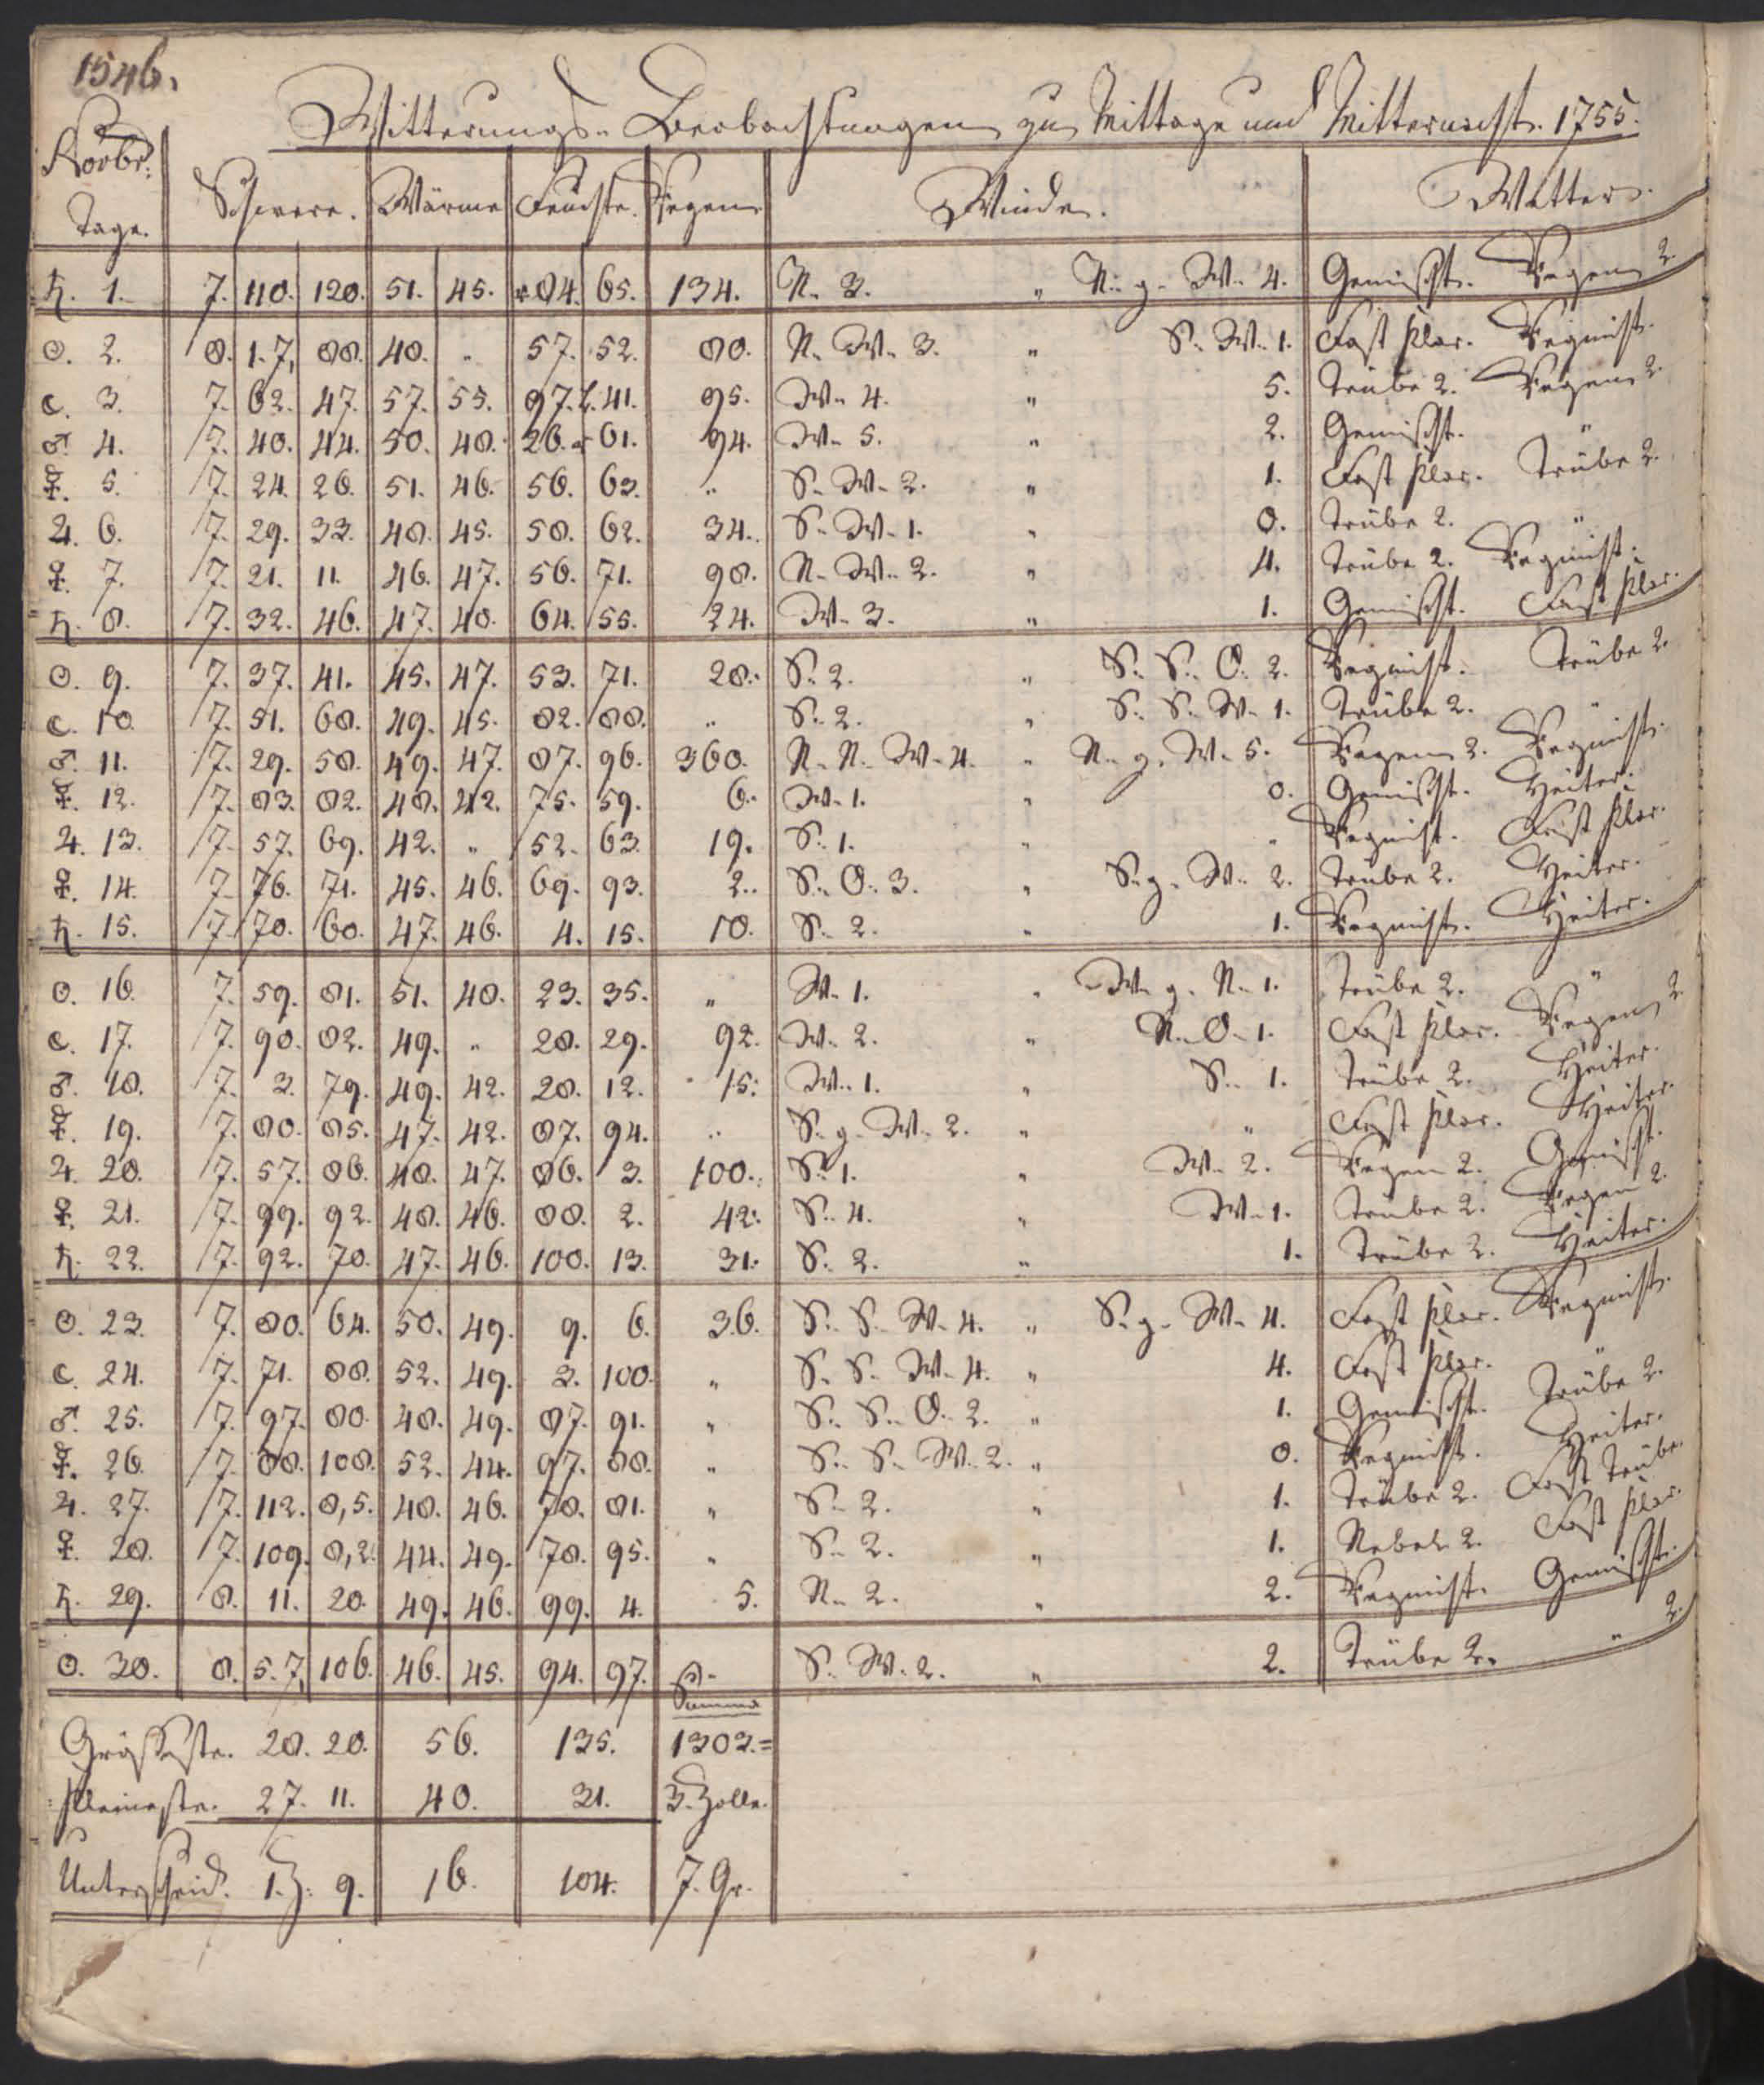 1546.
Witterungs-Beobachtungen zu Mittage und Mitternacht. 1755.
Novbr. Tage. Schwere. Wärme Feuchte. Regen Winde. Wetter.
♄. 1. 7. 110. 120. 51. 45. 84. 65. 134. N. 3. „ N. g. W. 4. Gemischt. Regen 2.
☉. 2. 8. 1.7, 88. 48. „ 57. 52. 80. N. W. 3. „ S. W. 1. Fast klar. Regnicht.
☾. 3. 7. 62. 47. 57. 55. 97. 41. 95. W. 4. „ 5. Trübe 2. Regen 2.
♂. 4. 7. 40. 44. 50. 48. 26. 61. 94. W. 5. „ 2. Gemischt. „
☿. 5. 7. 24. 26. 51. 46. 56. 63. „ S. W. 2. „ 1. Fast klar. Trübe 2.
♃. 6. 7. 29. 33. 48. 45. 58. 62. 34. S. W. 1. „ 0. Trübe 2. „
♀. 7. 7. 21. 11. 46. 47. 56. 71. 98. N. W. 2. „ 4. Trübe 2. Regnicht.
♄. 8. 7. 32. 46. 47. 48. 64. 55. 24. W. 3. „ 1. Gemischt. Fast klar.
☉. 9. 7. 37. 41. 45. 47. 53. 71. 28. S. 2. „ S. S. O. 2. Regnicht. Trübe 2.
☾. 10. 7. 51. 68. 49. 45. 82. 88. „ S. 2. „ S. S. W. 1. Trübe 2. „
♂. 11. 7. 29. 58. 49. 47. 87. 96. 360. N. N. W. 4. „ N. g. W. 5. Regen 2. Regnicht.
☿. 12. 7. 83. 82. 48. 42. 75. 59. 6. W. 1. „ 0. Gemischt. Heiter.
♃. 13. 7. 57. 69. 42. „ 52. 63. 19. S. 1. „ „ Regnicht. Fast klar.
♀. 14. 7. 76. 71. 45. 46. 69. 93. 2. S. O. 3. „ S. g. W. 2. Trübe 2. Heiter.
♄. 15. 7. 70. 60. 47. 46. 4. 15. 10. S. 2. „ 1. Regnicht. Heiter.
☉. 16. 7. 59. 81. 51. 48. 23. 35. „ W. 1. „ W. g. N. 1. Trübe 2. „
☾. 17. 7. 90. 82. 49. „ 28. 29. 92. W. 2. „ N. O. 1. Fast klar. Regen 2.
♂. 18. 7. 3. 79. 49. 42. 28. 12. 15. W. 1. „ S. 1. Trübe 2. Heiter.
☿. 19. 7. 80. 85. 47. 42. 87. 94. „ S. g. W. 2. „ „ Fast klar. Heiter.
♃. 20. 7. 57. 86. 48. 47. 86. 3. 100. S. 1. „ W. 2. Regen 2. Gemischt.
♀. 21. 7. 99. 92. 48. 46. 88. 2. 42. S. 4. „ W. 1. Trübe 2. Regen 2.
♄. 22. 7. 92. 70. 47. 46. 100. 13. 31. S. 2. „ 1. Trübe 2. Heiter.
☉. 23. 7. 80. 64. 50. 49. 9. 6. 36. S. S. W. 4. „ S. g. W. 4. Fast klar. Regnicht.
☾. 24. 7. 71. 88. 52. 49. 3. 100. „ S. S. W. 4. „ 4. Fast klar. „
♂. 25. 7. 97. 80. 48. 49. 87. 91. „ S. S. O. 2. „ 1. Gemischt. Trübe 2.
☿. 26. 7. 88. 108. 52. 44. 97. 88. „ S. S. W. 2. „ 0. Regnicht. Heiter.
♃. 27. 7. 112. 8,5. 48. 46. 78. 81. „ S. 2. „ 1. Trübe 2. Fast Trübe.
♀. 28. 7. 109. 8,2. 44. 49. 78. 95. „ S. 2. „ 1. Nebel 2. Fast klar.
♄. 29. 8. 11. 20. 49. 46. 99. 4. 5. N. 2. „ 2. Regnicht. Gemischt.
☉. 30. 8. 5.7, 106. 46. 45. 94. 97. 8. S. W. 2. „ 2. Trübe 2. „ 2.
Summa
Grösseste. 28. 20. 56. 135. 1303.=
Kleineste. 27. 11. 40. 31. 3. Zolle.
Unterscheid. 1. Z. 9. 16. 104. 7. Gr.